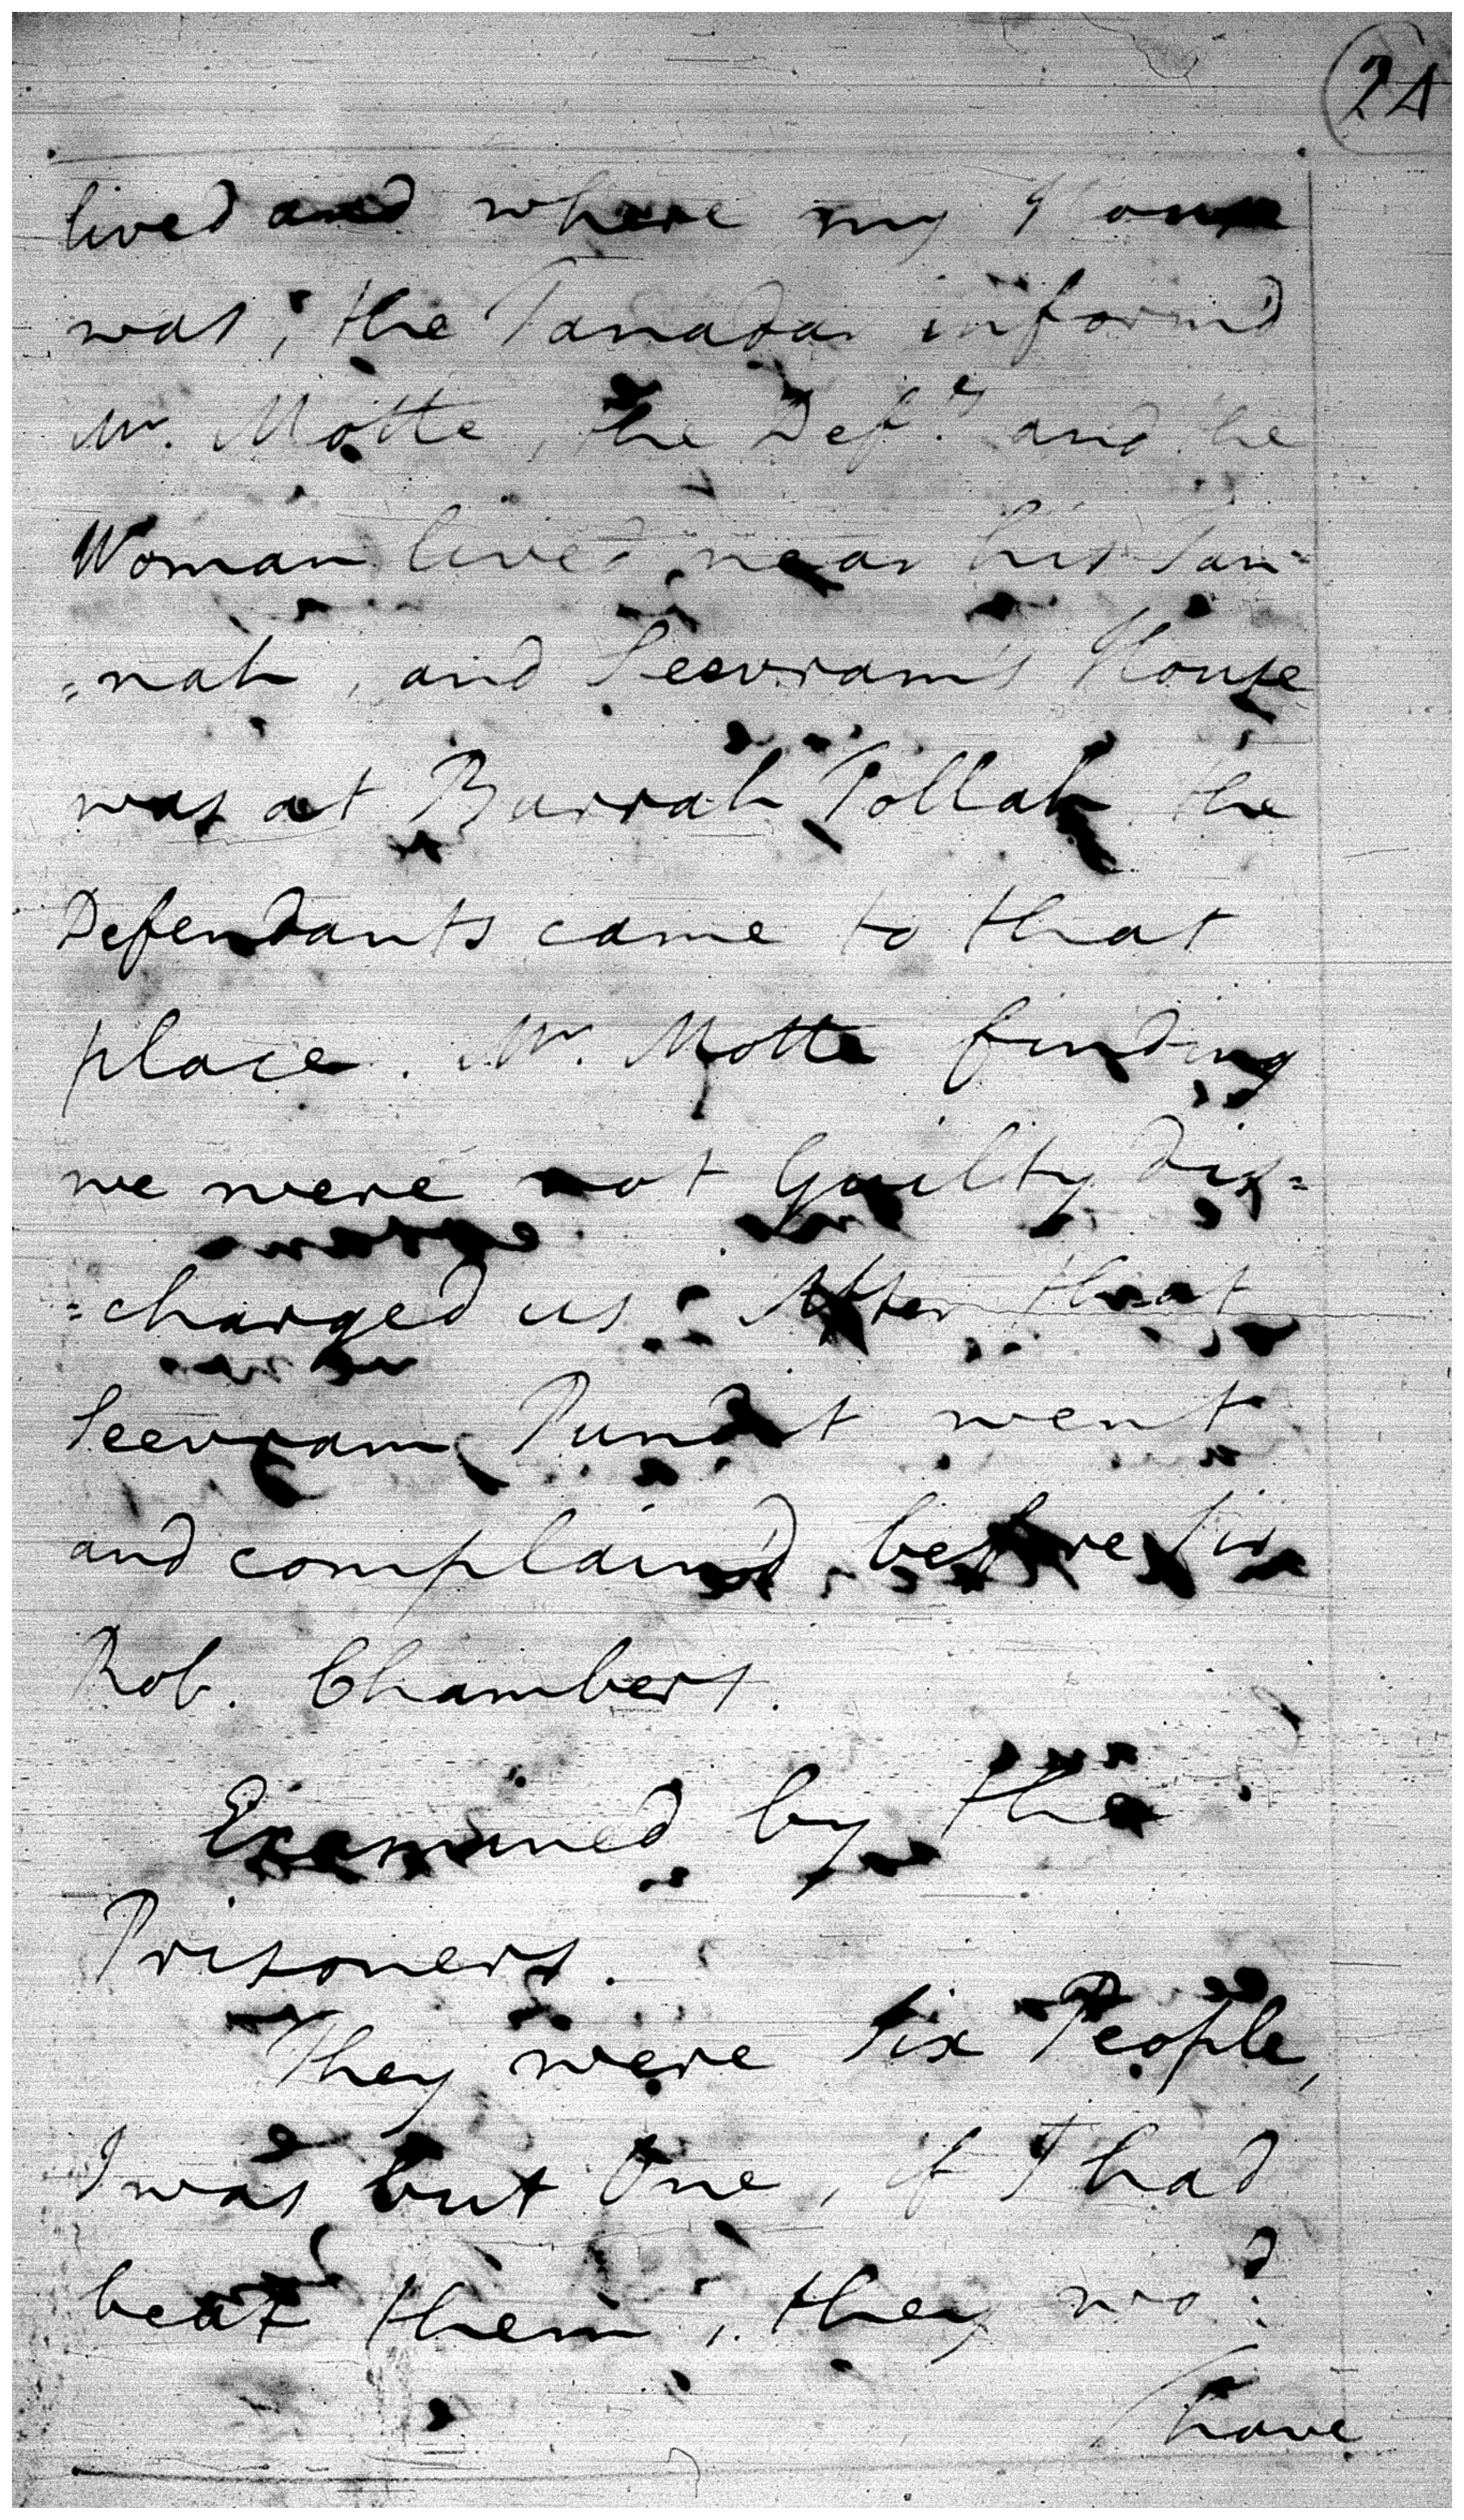 24
lived and where my House
was; the Tanadar inform'd
Mr. Motte, the Def.ts and the
Woman lived near his Tan=
=nah, and Seevram's House
was at Burrah Tollah the
Defendants came to that
place. Mr. Motte finding
we were not Guilty dis=
=charged us: After that
Seevram Pundit went
and complain'd before Sir
Rob. Chambers.
Examined by the
Prisoners.
They were Six People,
I was but One, if I had
beat them, they wod.
have